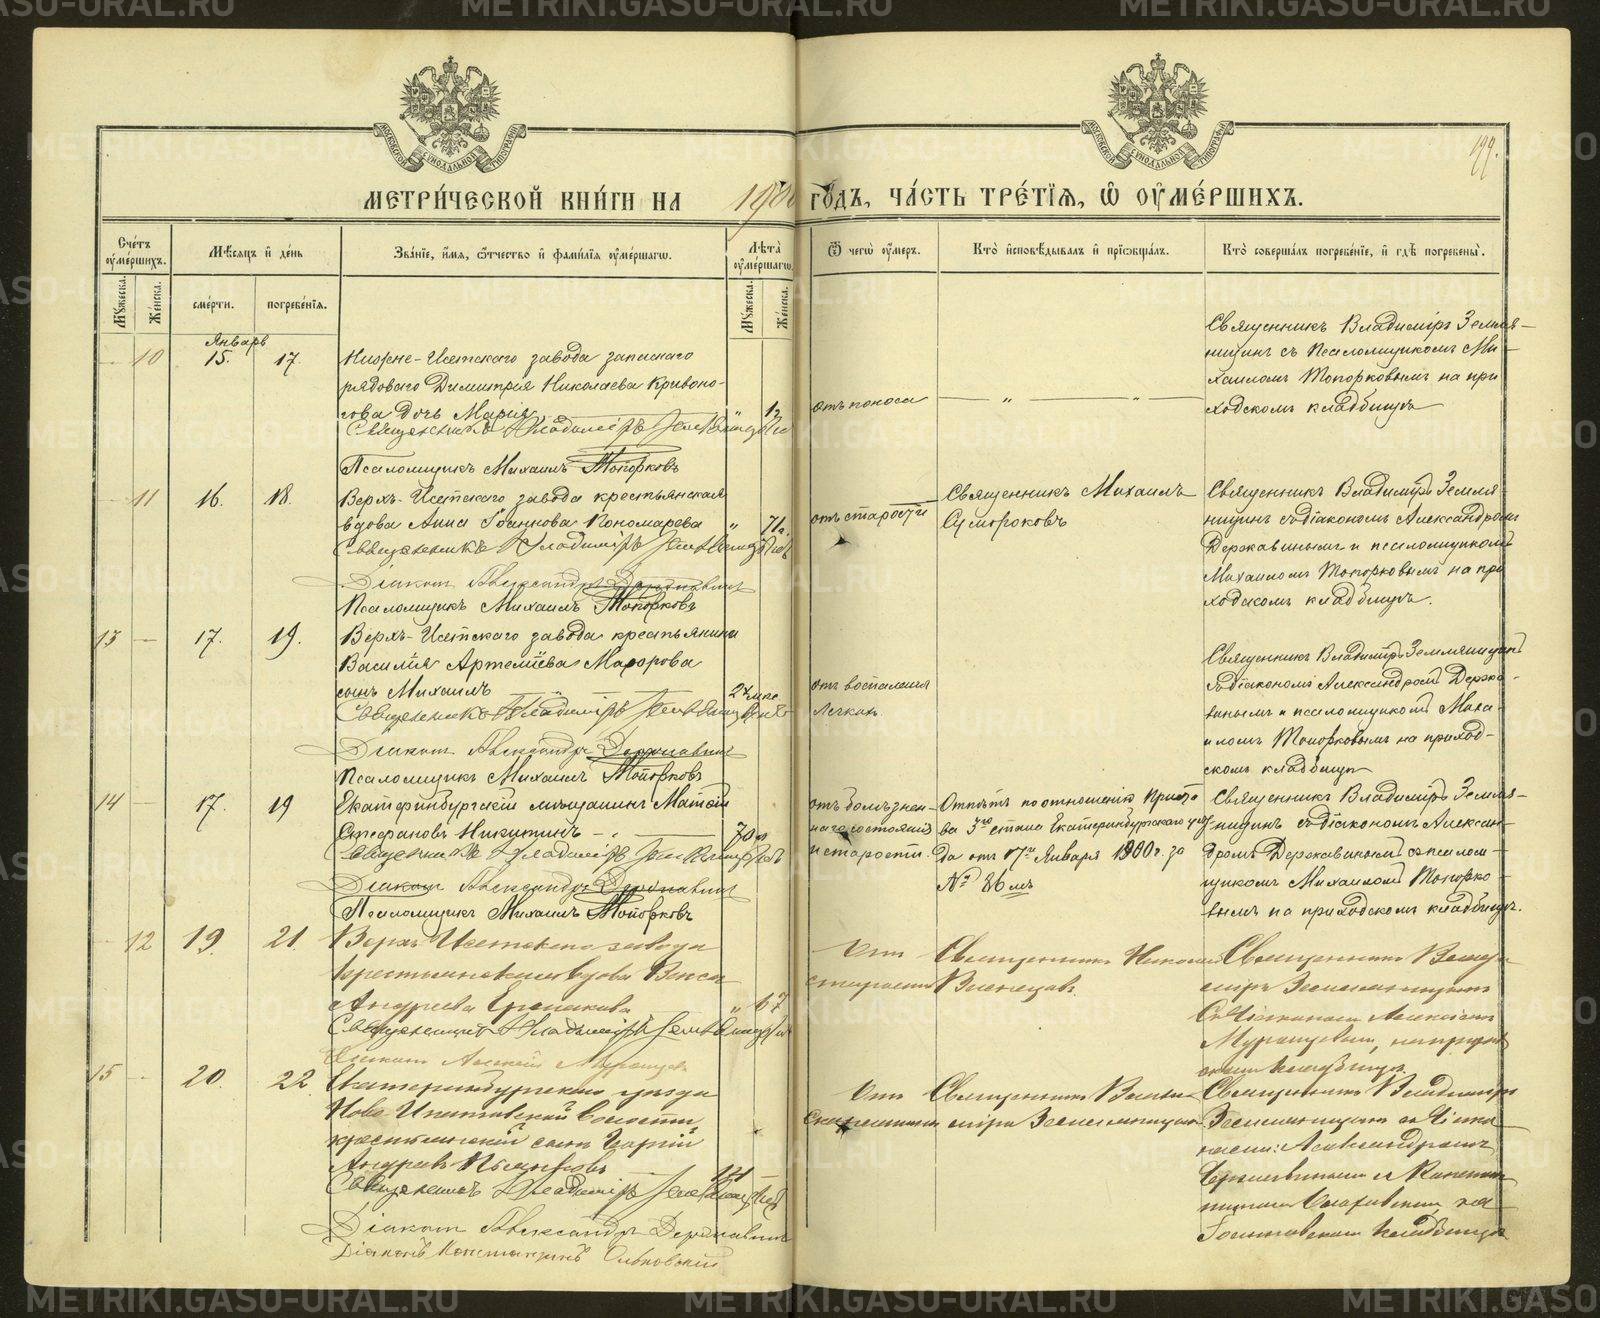 199.
МЕТРИ́ЧЕСКОЙ КНИ́ГИ НА 1900 ГОДЪ, ЧА́СТЬ ТРЕ́ТІЯ, Ѡ ОУМЕ́РШИХЪ.
Сче́тъ оуме́ршихъ.
Мѣ́сяцъ и де́нь
Зва́ніе, и́мя, о́тчество и фами́лія оуме́ршагѡ.
Лѣта̀ оуме́ршагѡ.
Ѿ чегѡ̀ оу́меръ.
Кто̀ исповѣ́дывалъ и пріѡбща́лъ.
Кто̀ соверша́лъ погребе́ніе, и гдѣ̀ погребены̀.
Му́жеска.
Же́нска.
сме́рти.
погребе́нія.
Му́жеска.
Же́нска.
Январь
10 15. 17.
Нижне-Исетскаго завода запаснаго
рядоваго Димитрія Николаева Кривоно-
гова дочь Марія
Священникъ Владиміръ
Псаломщикъ Михаилъ Топорковъ
отъ поноса
Священникъ Владиміръ Земля-
ницынъ съ Псаломщикомъ Ми-
хаиломъ Топорковымъ на при
ходскомъ кладбищѣ
11 16. 18.
Верхъ-Исетскаго завода крестьянская
вдова Анна Іоаннова Пономарева
71
Священникъ Владиміръ
Діаконъ Александръ Державинъ
Псаломщикъ Михаилъ Топорковъ
отъ старости
Священникъ Михаилъ
Сумороковъ
Священникъ Владиміръ Земля-
ницынъ съ діакономъ Александромъ
Державинымъ и псаломщикомъ
Михаиломъ Топорковымъ на при
ходскомъ кладбищѣ.
13 17. 19.
Верхъ-Исетскаго завода крестьянина
Василія Артеміева Махорова
сынъ Михаилъ
Священникъ Владиміръ
Діаконъ Александръ Державинъ
Псаломщикъ Михаилъ Топорковъ
отъ воспаленія
легкихъ
Священникъ Владиміръ Земляницынъ
съ діакономъ Александромъ Держа-
винымъ и псаломщикомъ Миха-
иломъ Топорковымъ на приход-
скомъ кладбищѣ
14 17. 19
Екатеринбургскій мѣщанинъ Матѳій
Стефановъ Никитинъ
70
Священникъ Владиміръ
Діаконъ Александръ Державинъ
Псаломщикъ Михаилъ Топорковъ
отъ болѣзнен-
наго состоянія
и старости.
Отпѣтъ по отношенію Приста
ва 3го стана Екатеринбургскаго уѣз
да отъ 17го Января 1900 г. за
№ 26мъ
Священникъ Владиміръ Земля-
ницынъ съ діакономъ Алексан-
дромъ Державинымъ и псалом-
щикомъ Михаиломъ Топорко-
вымъ на приходскомъ кладбищѣ.
12 19. 21.
Верхъ Исетскаго завода
крестьянская вдова
Андреева Ермакова
67
Священникъ Владиміръ
Діаконъ Алексій
Отъ
старости
Священникъ Николай
Священникъ Влади
міръ Земляницынъ
съ Діакономъ Алексіемъ
на приход
скомъ кладбищѣ.
15 20. 22.
Екатеринбургскаго уѣзда
Ново Ипатовской волости
крестьянскій сынъ
Андреевъ
Священникъ Владиміръ
Діаконъ Александръ Державинъ
Діаконъ Константинъ
Отъ
Священникъ Влади
міръ Земляницынъ
Священникъ Владиміръ
Земляницынъ съ Діако
нами: Александромъ
Державинымъ и Констан
на
Іоанновскомъ кладбищѣ
METRIKI.GASO-URAL.RU